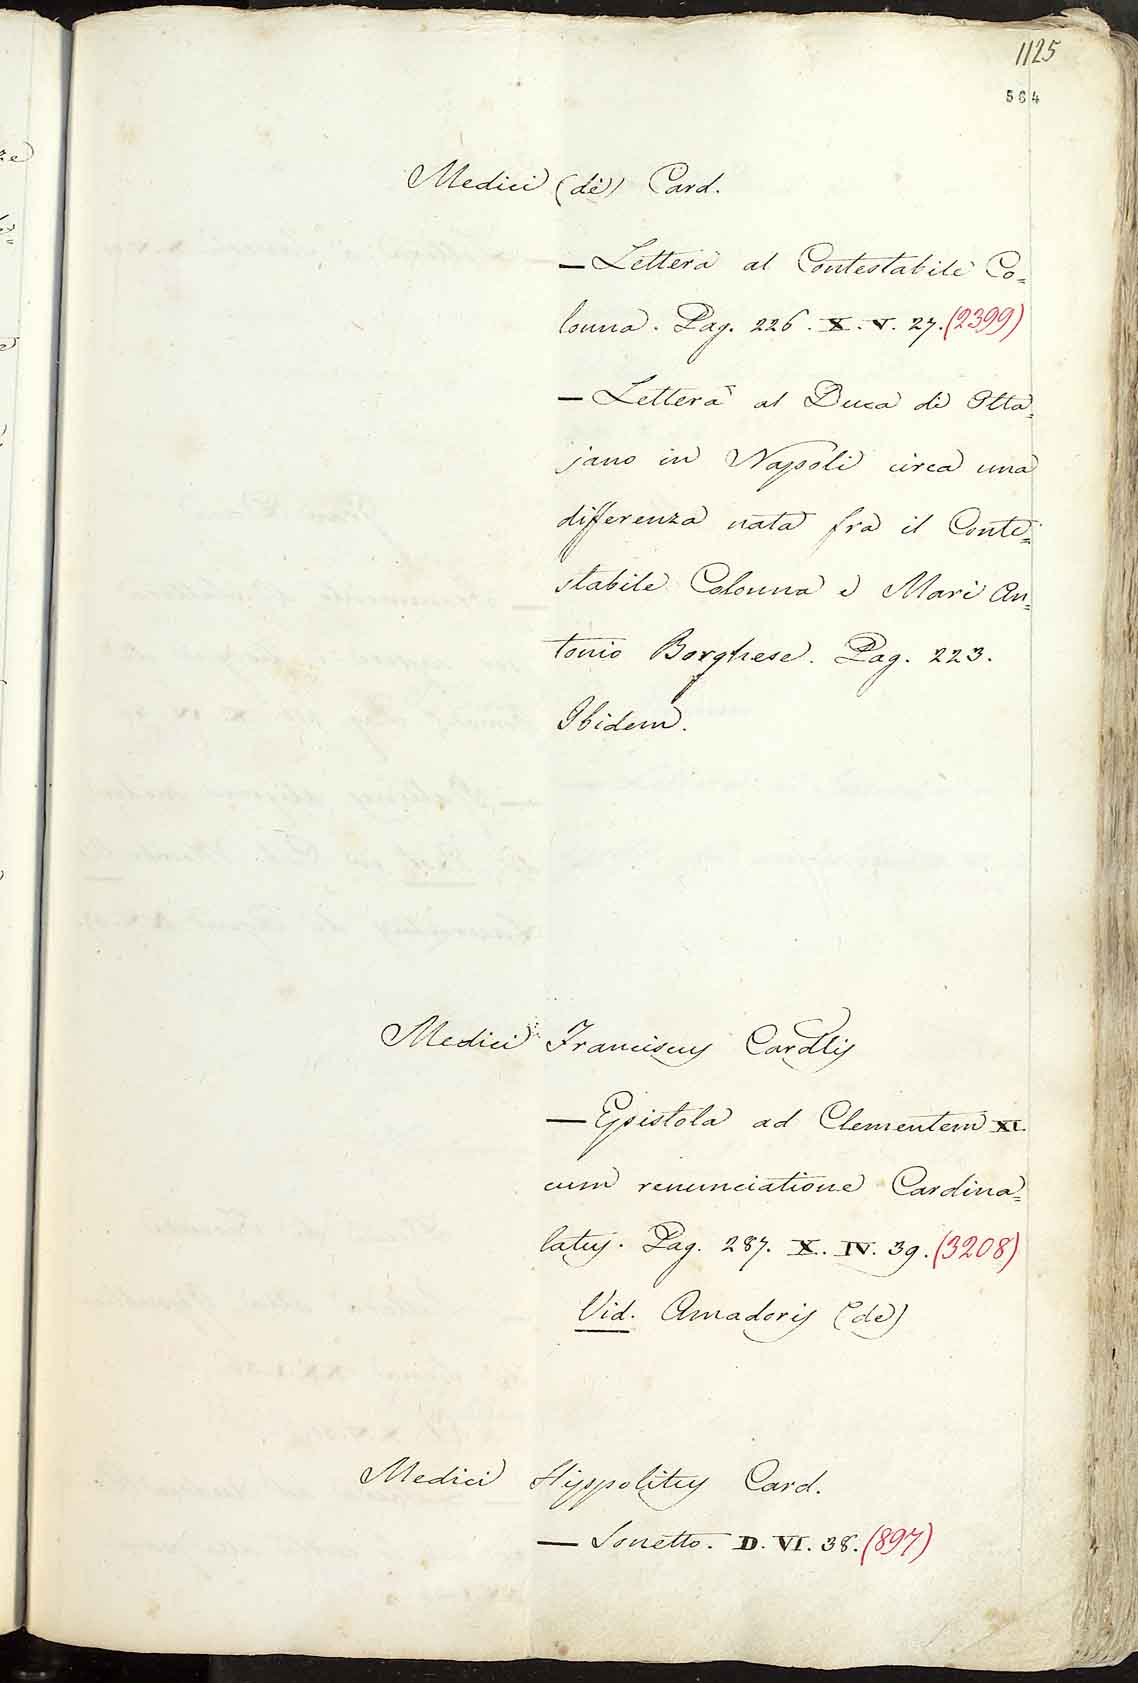 1125
564
Medici (de) Card.
— Lettera al Contestabile Co=
lonna. Pag. 226. X. V. 27. (2399)
— Lettera al Duca di Otta=
jano in Napoli circa una
differenza nata fra il Conte=
stabile Colonna e Marc An=
tonio Borghese. Pag. 223.
Ibidem.
Medici Franciscus Cardlis
— Epistola ad Clementem XI.
cum renunciatione Cardina=
latus. Pag. 287. X. IV. 39. (3208)
Vid. Amadoris (de)
Medici Hyppolitus Card.
— Sonetto. D. VI. 38. (897)